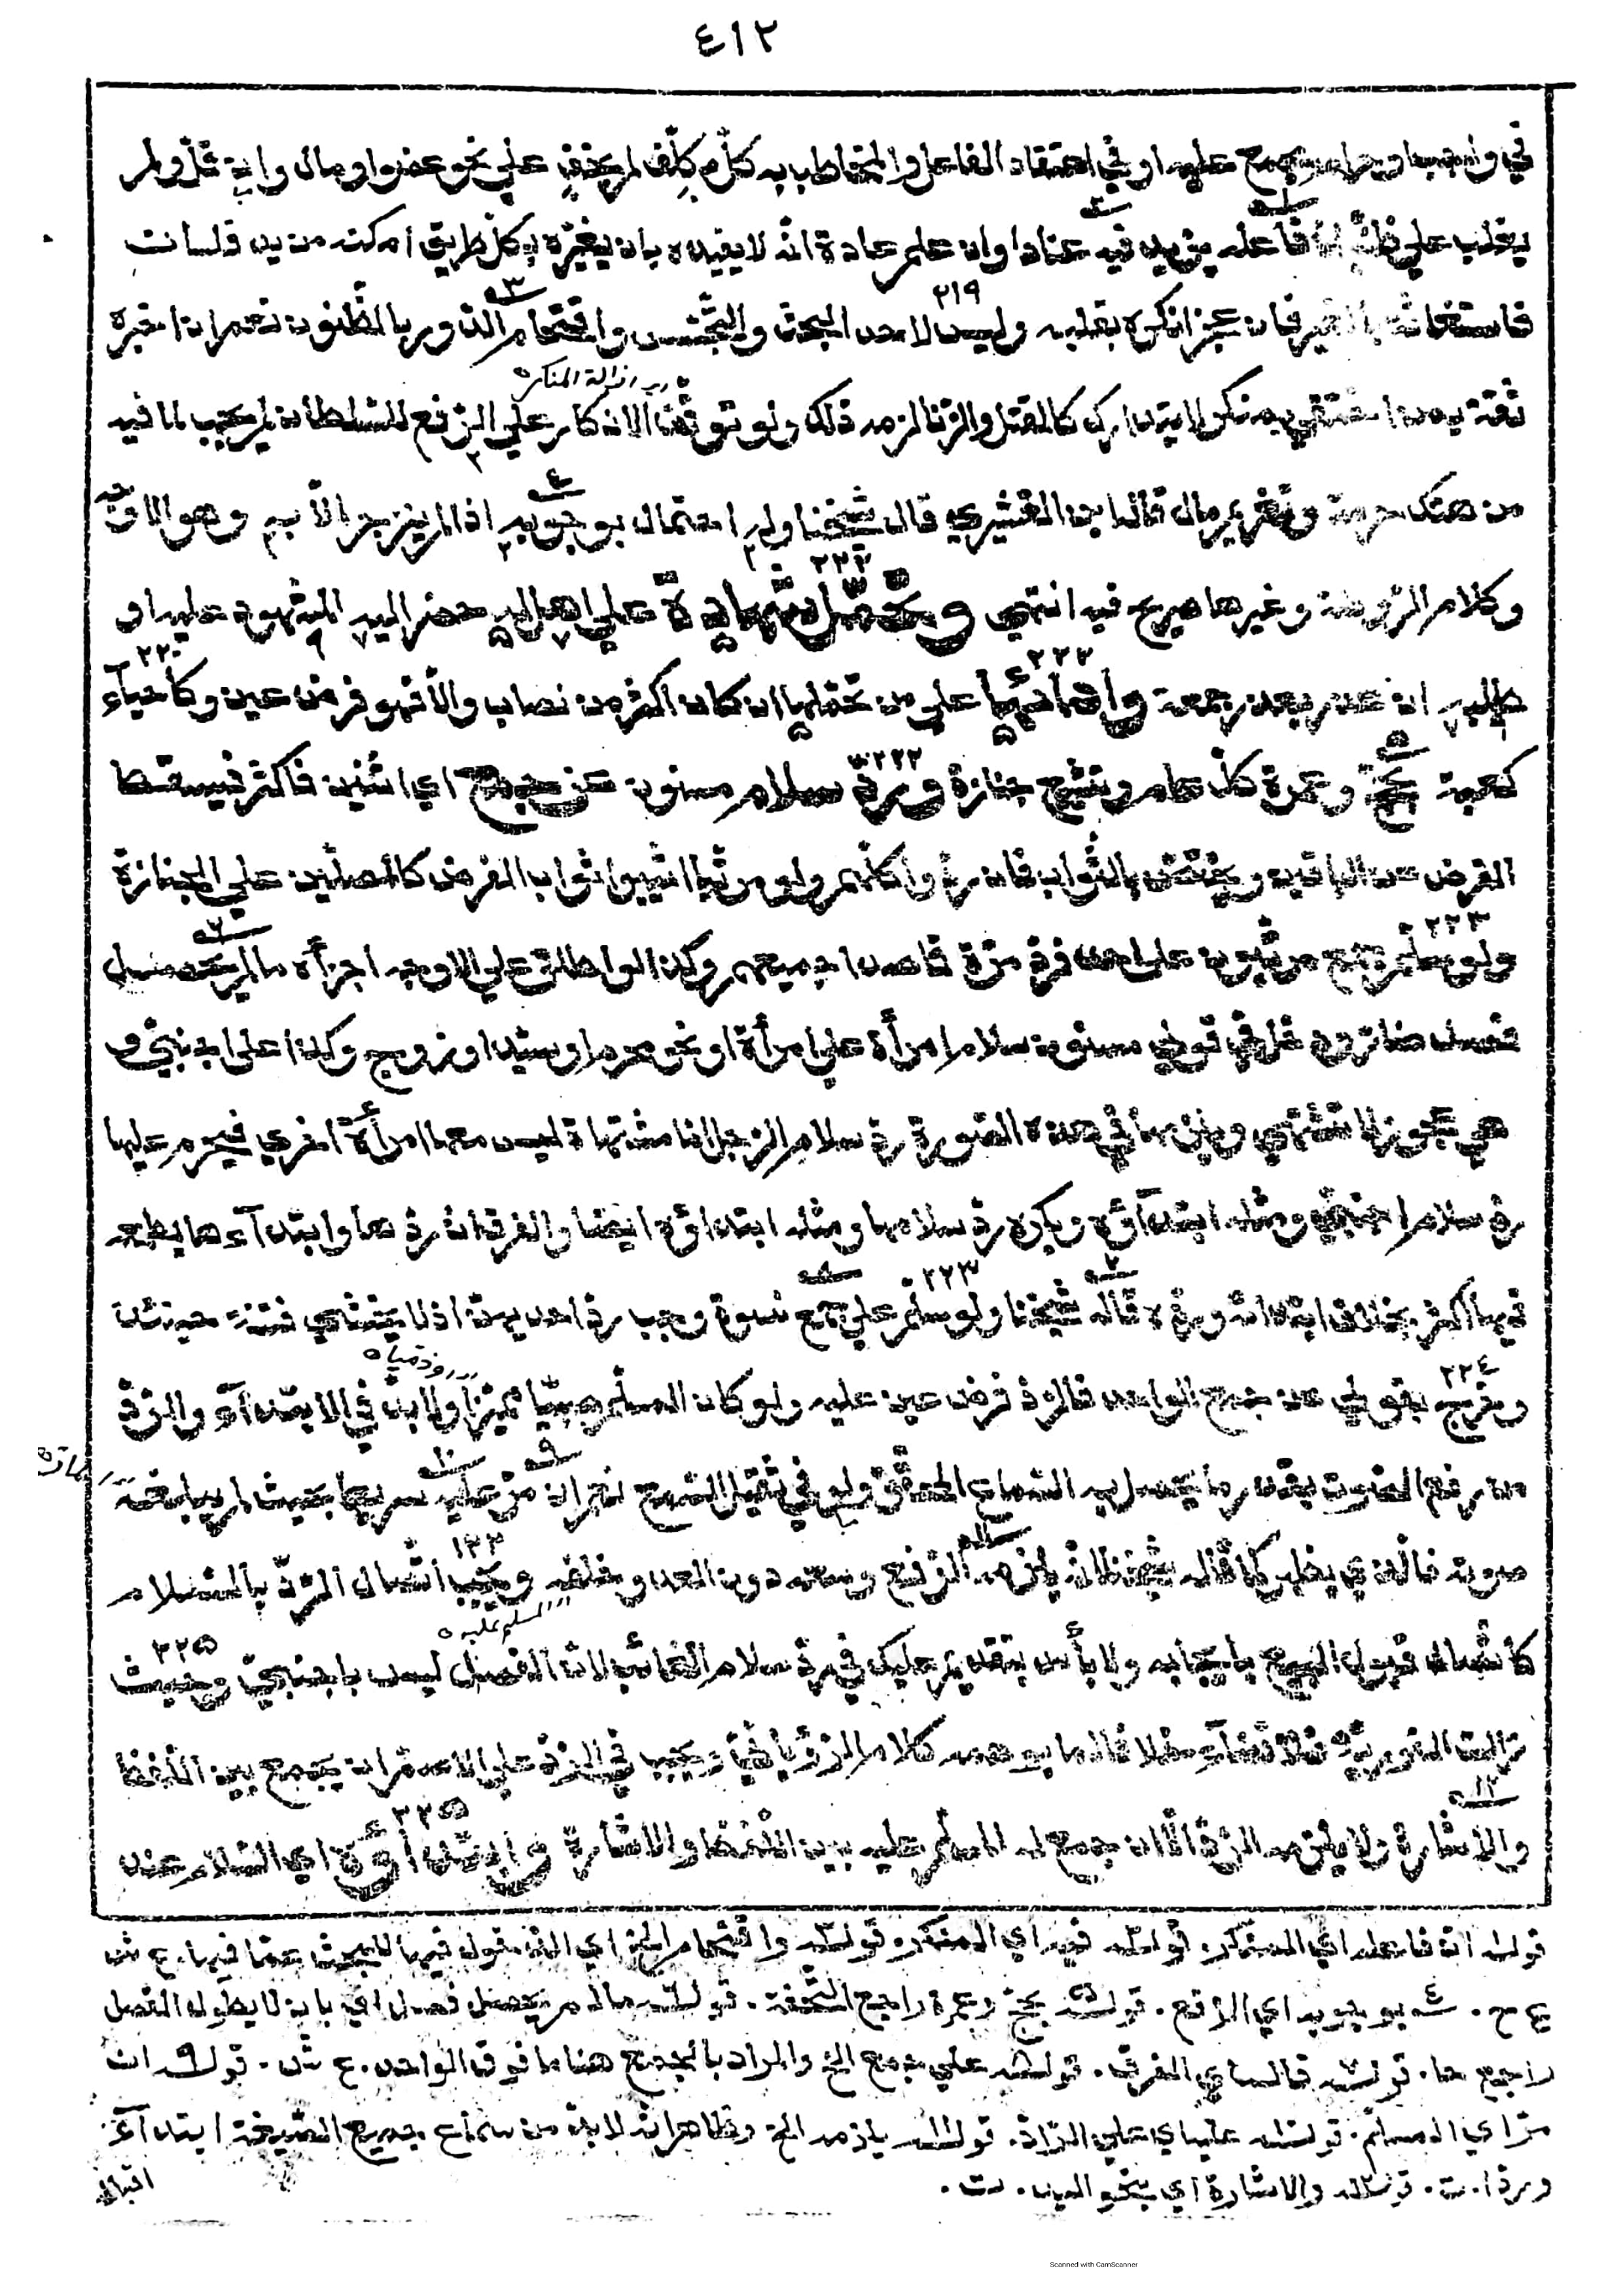 ٤١٢
في واجب او حرام مجمع عليه او في اعتقاد الفاعل والمخاطب به كل مكلف لم يخف على نحو عضو او مال وان قل ولم
يغلب على ظنه ان فاعله يزيد فيه عنادا وان علم عادة انه لا يفيده بان يغيره بكل طريق امكنه من يد فلسان
فاستغاثة بالغير فان عجز انكره بقلبه وليس لاحد البحث والتجسس واقتحام الدور بالظنون نعم ان اخبره
ازالة المنكر
ثقة بمن اختفى بمنكر لا يتدارك كالقتل والزنا لزمه ذلك ولو توقف الانكار على الرفع للسلطان لم يجب لما فيه
من هتك حرمة وتغريم مال قاله ابن القشيري قال شيخنا وله احتمال بوجوبه اذا لم ينزجر الا به وهو الاوجه
وكلام الروضة وغيرها صريح فيه انتهى وتحمل شهادة على اهل له حضر اليه المشهود عليه او
طلبه ان عذر بعذر جمعة وادائها على من تحملها ان كان اكثر من نصاب والا فهو فرض عين وكاحياء
كعبة بحج وعمرة كل عام وتشييع جنازة ورد سلام مسنون عن جمع اي اثنين فاكثر فيسقط
الفرض عن الباقين ويختص بالثواب فان ردوا كلهم ولو مرتبا اثيبوا ثواب الفرض كالمصلين على الجنازة
ولو سلم جمع مرتبون على واحد فرد مرة قاصدا جميعهم وكذا لو اطلق على الاوجه اجزأه ما لم يحصل
فصل ضار ودخل في قولي مسنون سلام امرأة على امرأة او نحو محرم او سيد او زوج وكذا على اجنبي و
هي عجوز لا تشتهى ويلزمها في هذه الصورة رد سلام الرجل اما مشتهاة ليس معها امرأة اخرى فيحرم عليها
رد سلام اجنبي ومثله ابتداؤه ويكره رد سلامها ومثله ابتداؤه ايضا والفرق ان ردها وابتداءها يطمعه
فيها اكثر بخلاف ابتدائه ورده قاله شيخنا ولو سلم على جمع نسوة وجب رد احديهن اذ لا يخشى فتنة حينئذ
وخرج بقولي عن جمع الواحد فالرد فرض عين عليه ولو كان المسلم صبيا مميزا ولا بد في الابتداء والرد
من رفع الصوت بقدر ما يحصل به السماع المحقق ولو في ثقيل السمع نعم ان مر عليه سريعا بحيث لم يبلغه
صوته فالذي يظهر كما قاله شيخنا انه يلزمه الرفع وسعه دون العدو خلفه ويجب اتصال الرد بالسلام
المسلم عليه
كاتصال قبول البيع بايجابه ولا بأس بتقديم عليك في رد سلام الغائب لان الفصل ليس باجنبي وحيث
زالت الفورية فلا قضاء خلافا لما يوهمه كلام الروياني ويجب في الرد على الاصم ان يجمع بين اللفظ
والاشارة ولا يلزمه الرد الا ان جمع له المسلم عليه بين اللفظ والاشارة وابتداؤه اي السلام عند
قوله ان فاعله اي المنكر. قوله فيه اي المنكر. قوله واقتحام الخ اي الدخول فيها للبحث عما فيها. ع ش
ع ح. بوجوبه اي الرفع. قوله بحج وعمرة راجع التحفة. قوله ما لم يحصل فصل اي بان لا يطول الفصل
راجع ها. قوله قاله اي الفرق. قوله على جمع الخ والمراد بالجمع هنا ما فوق الواحد. ع ش. قوله ان
مر اي المسلم. قوله عليه اي على الراد. قوله يلزمه الخ وظاهر انه لا بد من سماع جميع الصيغة ابتداء
وردا. ت. قوله والاشارة اي بنحو اليد. ت.
Scanned with CamScanner